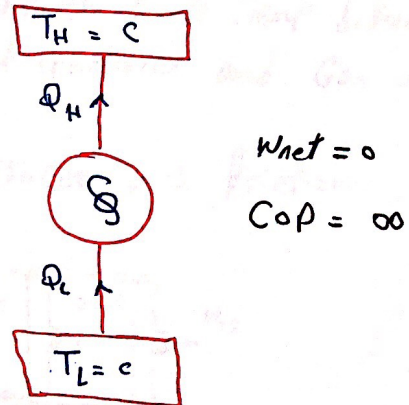 T_H = C
Q_H
Wnet = 0
COP = ∞
Q_L
T_L = C